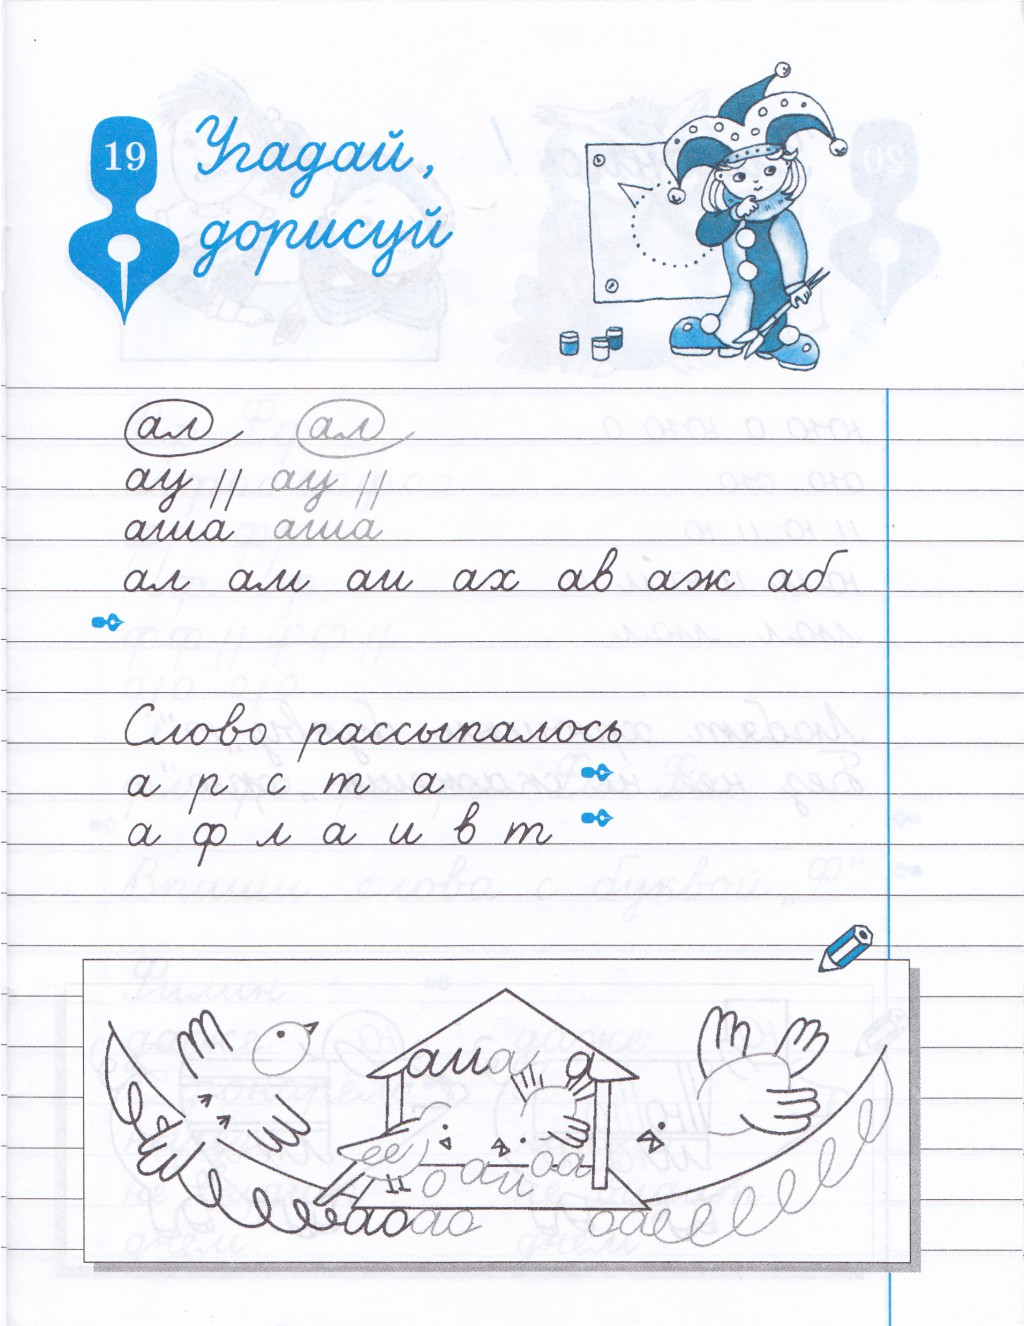 19
Угадай,
дорисуй
ал ал
ау // ау //
аша аша
ал ам аи ах ав аж аб
Слово рассыпалось
а р с т а
а ф л а и в т